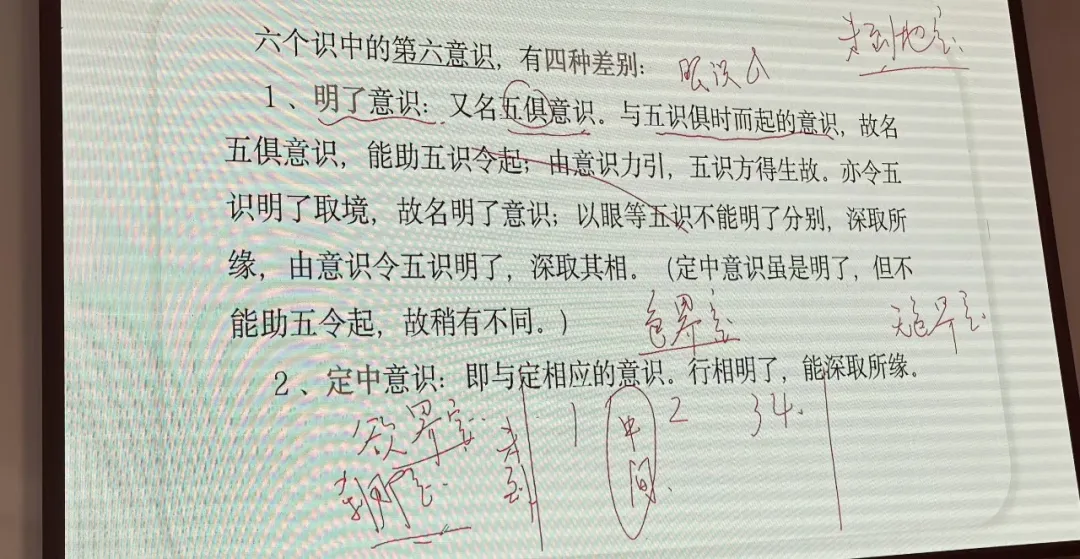 未到地定
六个识中的第六意识，有四种差别：
眼识
1、明了意识：又名五俱意识。与五识俱时而起的意识，故名
五俱意识，能助五识令起；由意识力引，五识方得生故。亦令五
识明了取境，故名明了意识；以眼等五识不能明了分别，深取所
缘，由意识令五识明了，深取其相。（定中意识虽是明了，但不
能助五令起，故稍有不同。）
色界定
无色界定
2、定中意识：即与定相应的意识。行相明了，能深取所缘。
欲界定
未到
1
中间
2
34